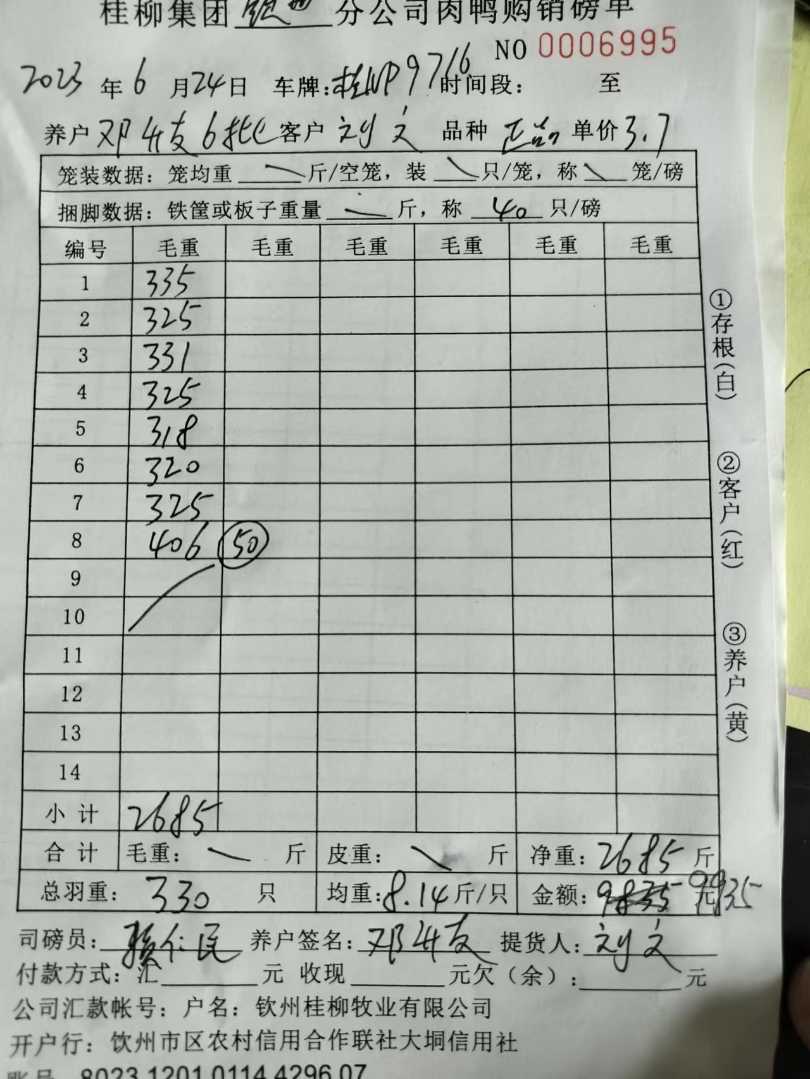 桂柳集团 分公司肉鸭购销磅单
NO 0006995
2023 年 6 月 24 日 车牌: 桂NP9716 时间段: 至
养户 邓升友6批 客户 刘文 品种 正品 单价 3.7
笼装数据: 笼均重 斤/空笼, 装 只/笼, 称 笼/磅
捆脚数据: 铁筐或板子重量 斤, 称 40 只/磅
编号 毛重 毛重 毛重 毛重 毛重 毛重
1 335
2 325
3 331
4 325
5 318
6 320
7 325
8 406 50
9
10
11
12
13
14
小计 2685
合计 毛重: 斤 皮重: 斤 净重: 2685 斤
总羽重: 330 只 均重: 8.14 斤/只 金额: 9835 元 9935
司磅员: 仁民 养户签名: 邓升友 提货人: 刘文
付款方式: 汇 元 收现 元欠(余): 元
公司汇款帐号: 户名: 钦州桂柳牧业有限公司
开户行: 饮州市区农村信用合作联社大垌信用社
账号 8023 1201 0114 4296 07
①存根(白)
②客户(红)
③养户(黄)